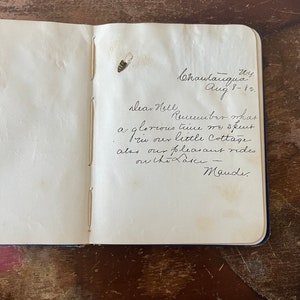 N.Y.
Chautauqua
Aug 8-80
Dear Nell
Remember what
a glorious time we spent
in our little Cottage
also our pleasant rides
on the Lake –
Maude.